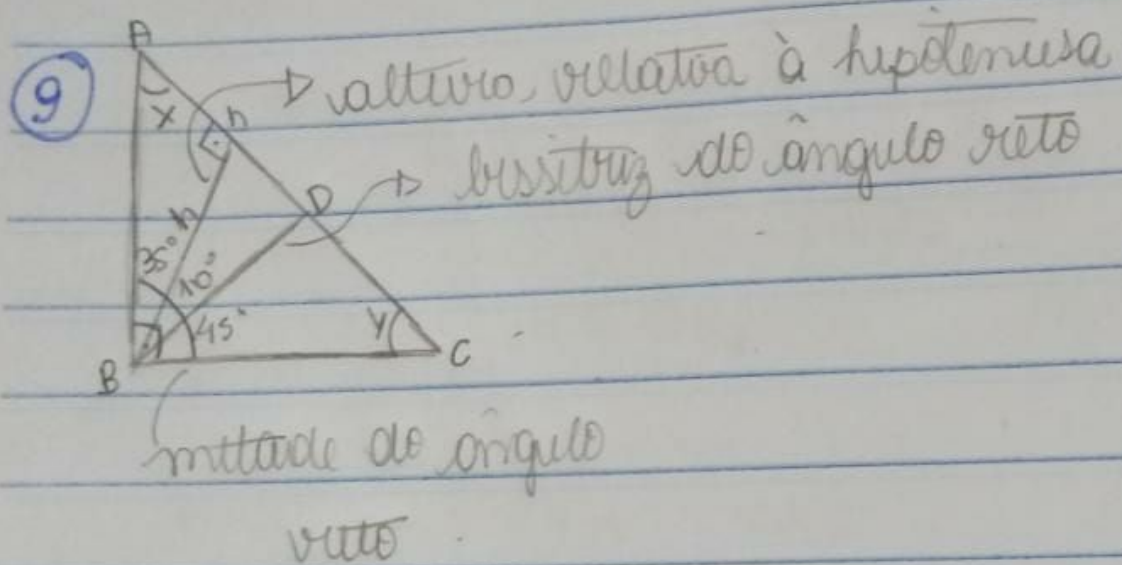 9
A
x
h
altura relativa à hipotenusa
bissetriz do ângulo reto
D
35°
h
10°
45°
y
B
C
metade do ângulo
reto.